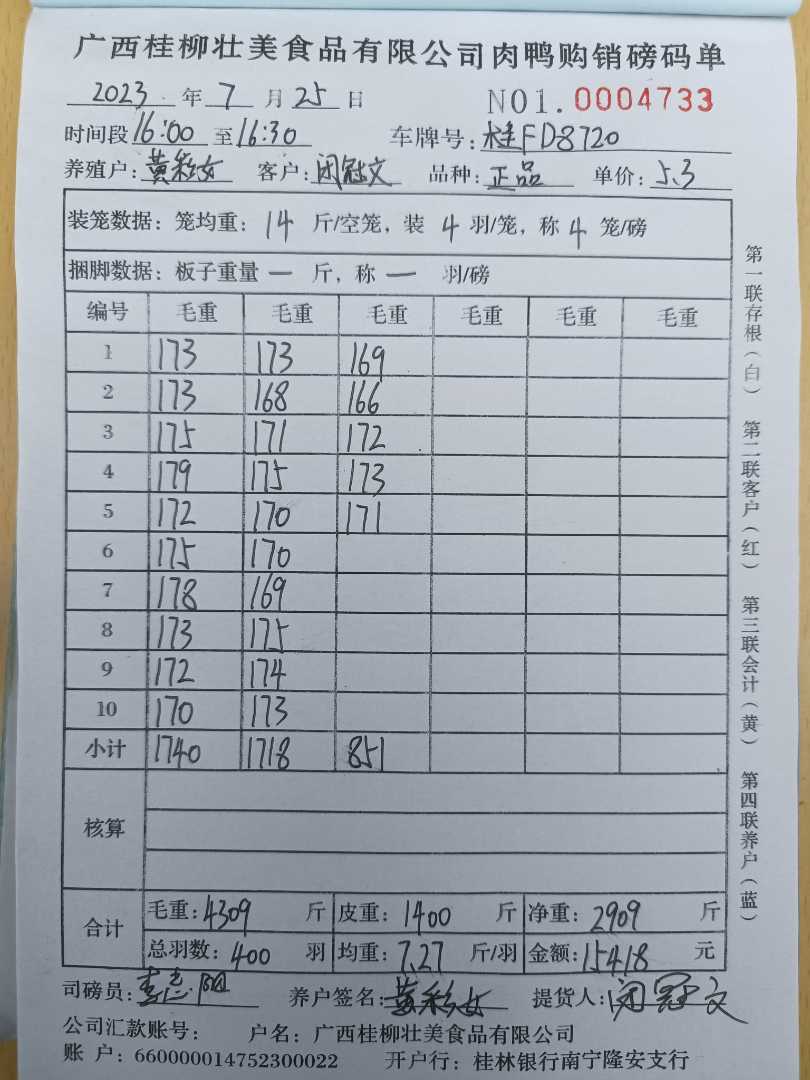 广西桂柳壮美食品有限公司肉鸭购销磅码单
2023 年 7 月 25 日 NO1. 0004733
时间段 16:00 至 16:30 车牌号: 桂FD8720
养殖户: 黄彩女 客户: 闭冠文 品种: 正品 单价: 5.3
装笼数据: 笼均重: 14 斤/空笼, 装 4 羽/笼, 称 4 笼/磅
捆脚数据: 板子重量 一 斤, 称 一 羽/磅
编号 毛重 毛重 毛重 毛重 毛重 毛重
1 173 173 169
2 173 168 166
3 175 171 172
4 179 175 173
5 172 170 171
6 175 170
7 178 169
8 173 175
9 172 174
10 170 173
小计 1740 1718 851
核算
合计
毛重: 4309 斤 皮重: 1400 斤 净重: 2909 斤
总羽数: 400 羽 均重: 7.27 斤/羽 金额: 15418 元
司磅员: 养户签名: 黄彩女 提货人: 闭冠文
公司汇款账号: 户名: 广西桂柳壮美食品有限公司
账 户: 660000014752300022 开户行: 桂林银行南宁隆安支行
第一联存根(白) 第二联客户(红) 第三联会计(黄) 第四联养户(蓝)